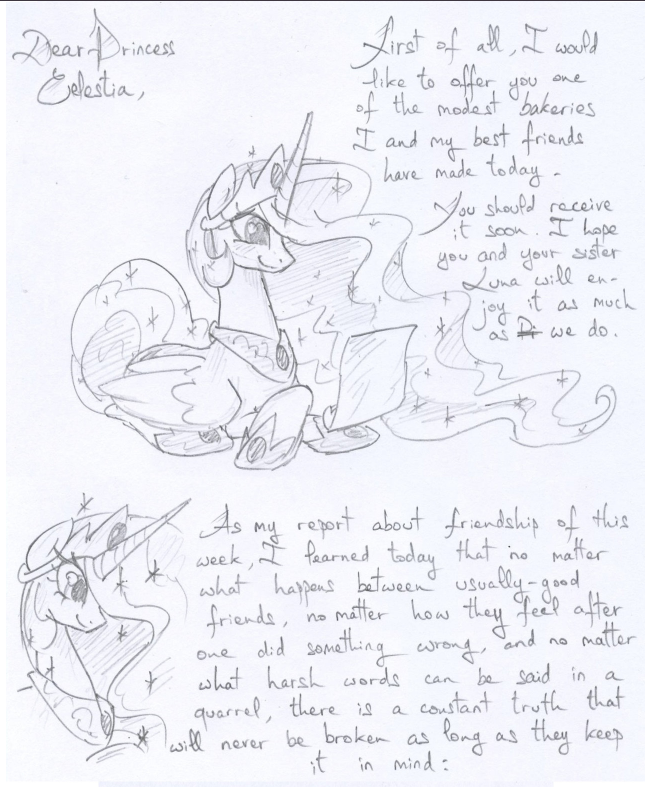 Dear Princess
Celestia,
First of all, I would
like to offer you one
of the modest bakeries
I and my best friends
have made today.
You should receive
it soon. I hope
you and your sister
Luna will en-
joy it as much
as we do.
As my report about friendship of this
week, I learned today that no matter
what happens between usually-good
friends, no matter how they feel after
one did something wrong, and no matter
what harsh words can be said in a
quarrel, there is a constant truth that
will never be broken as long as they keep
it in mind: